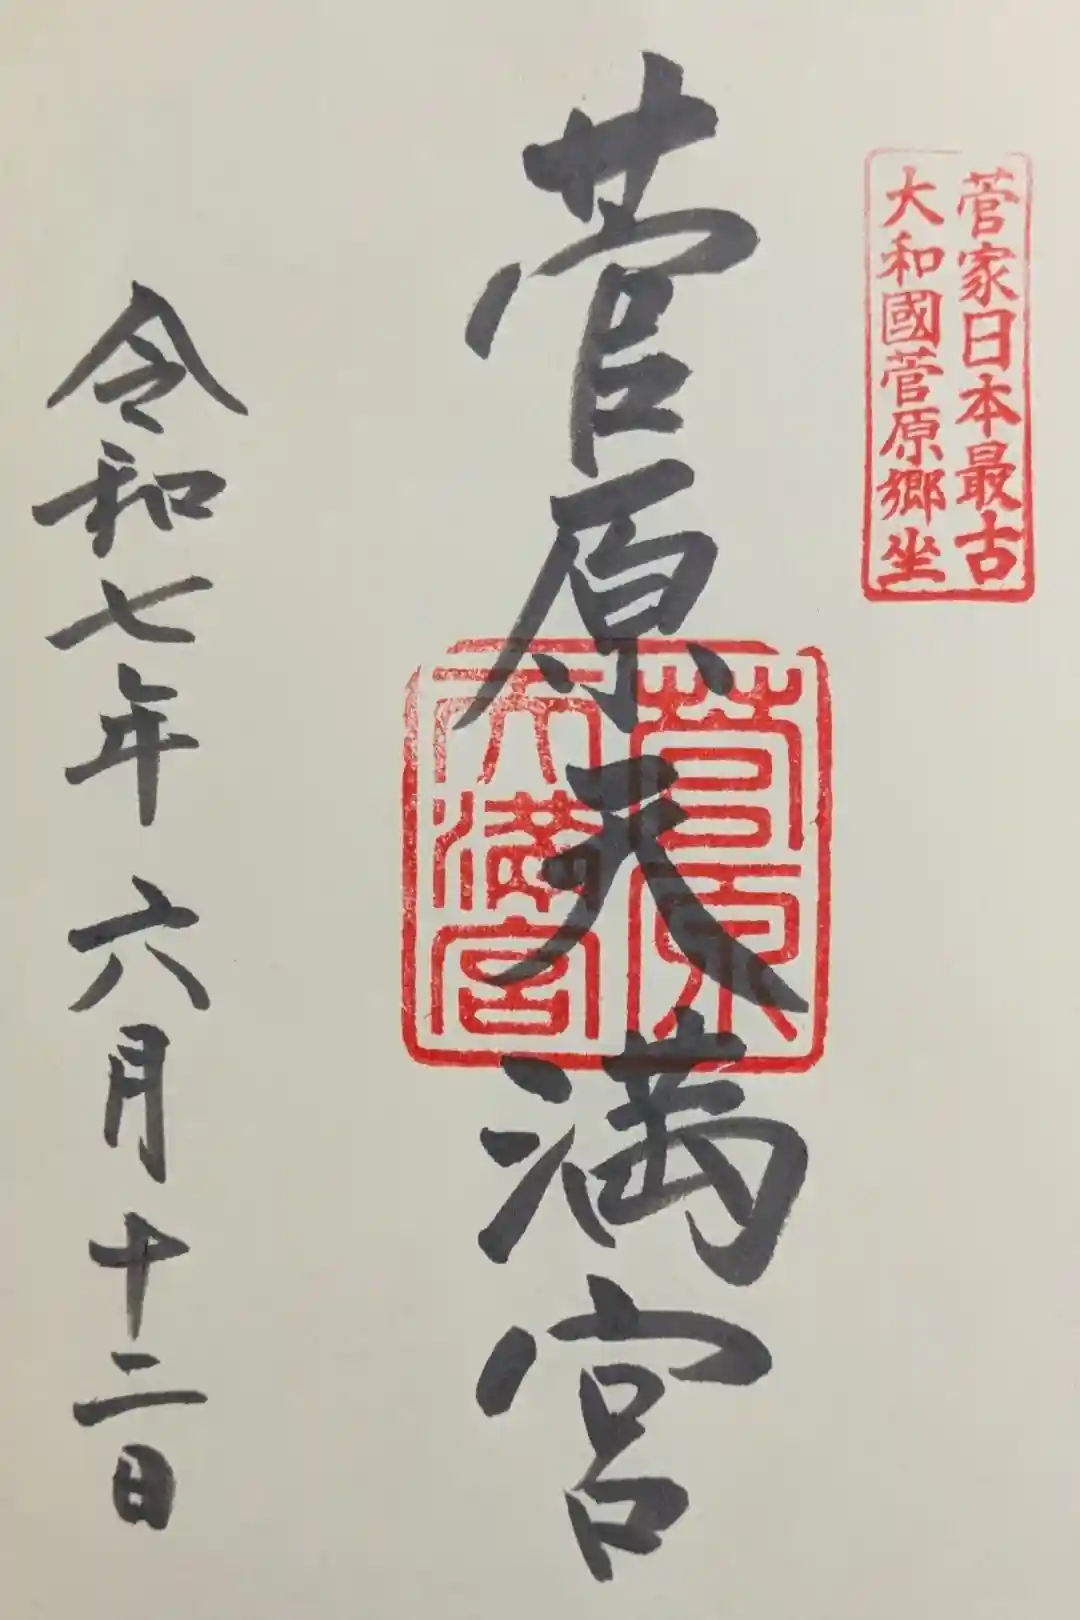 菅家日本最古
大和國菅原郷坐
菅原天満宮
菅原
天満宮
令和七年六月十二日